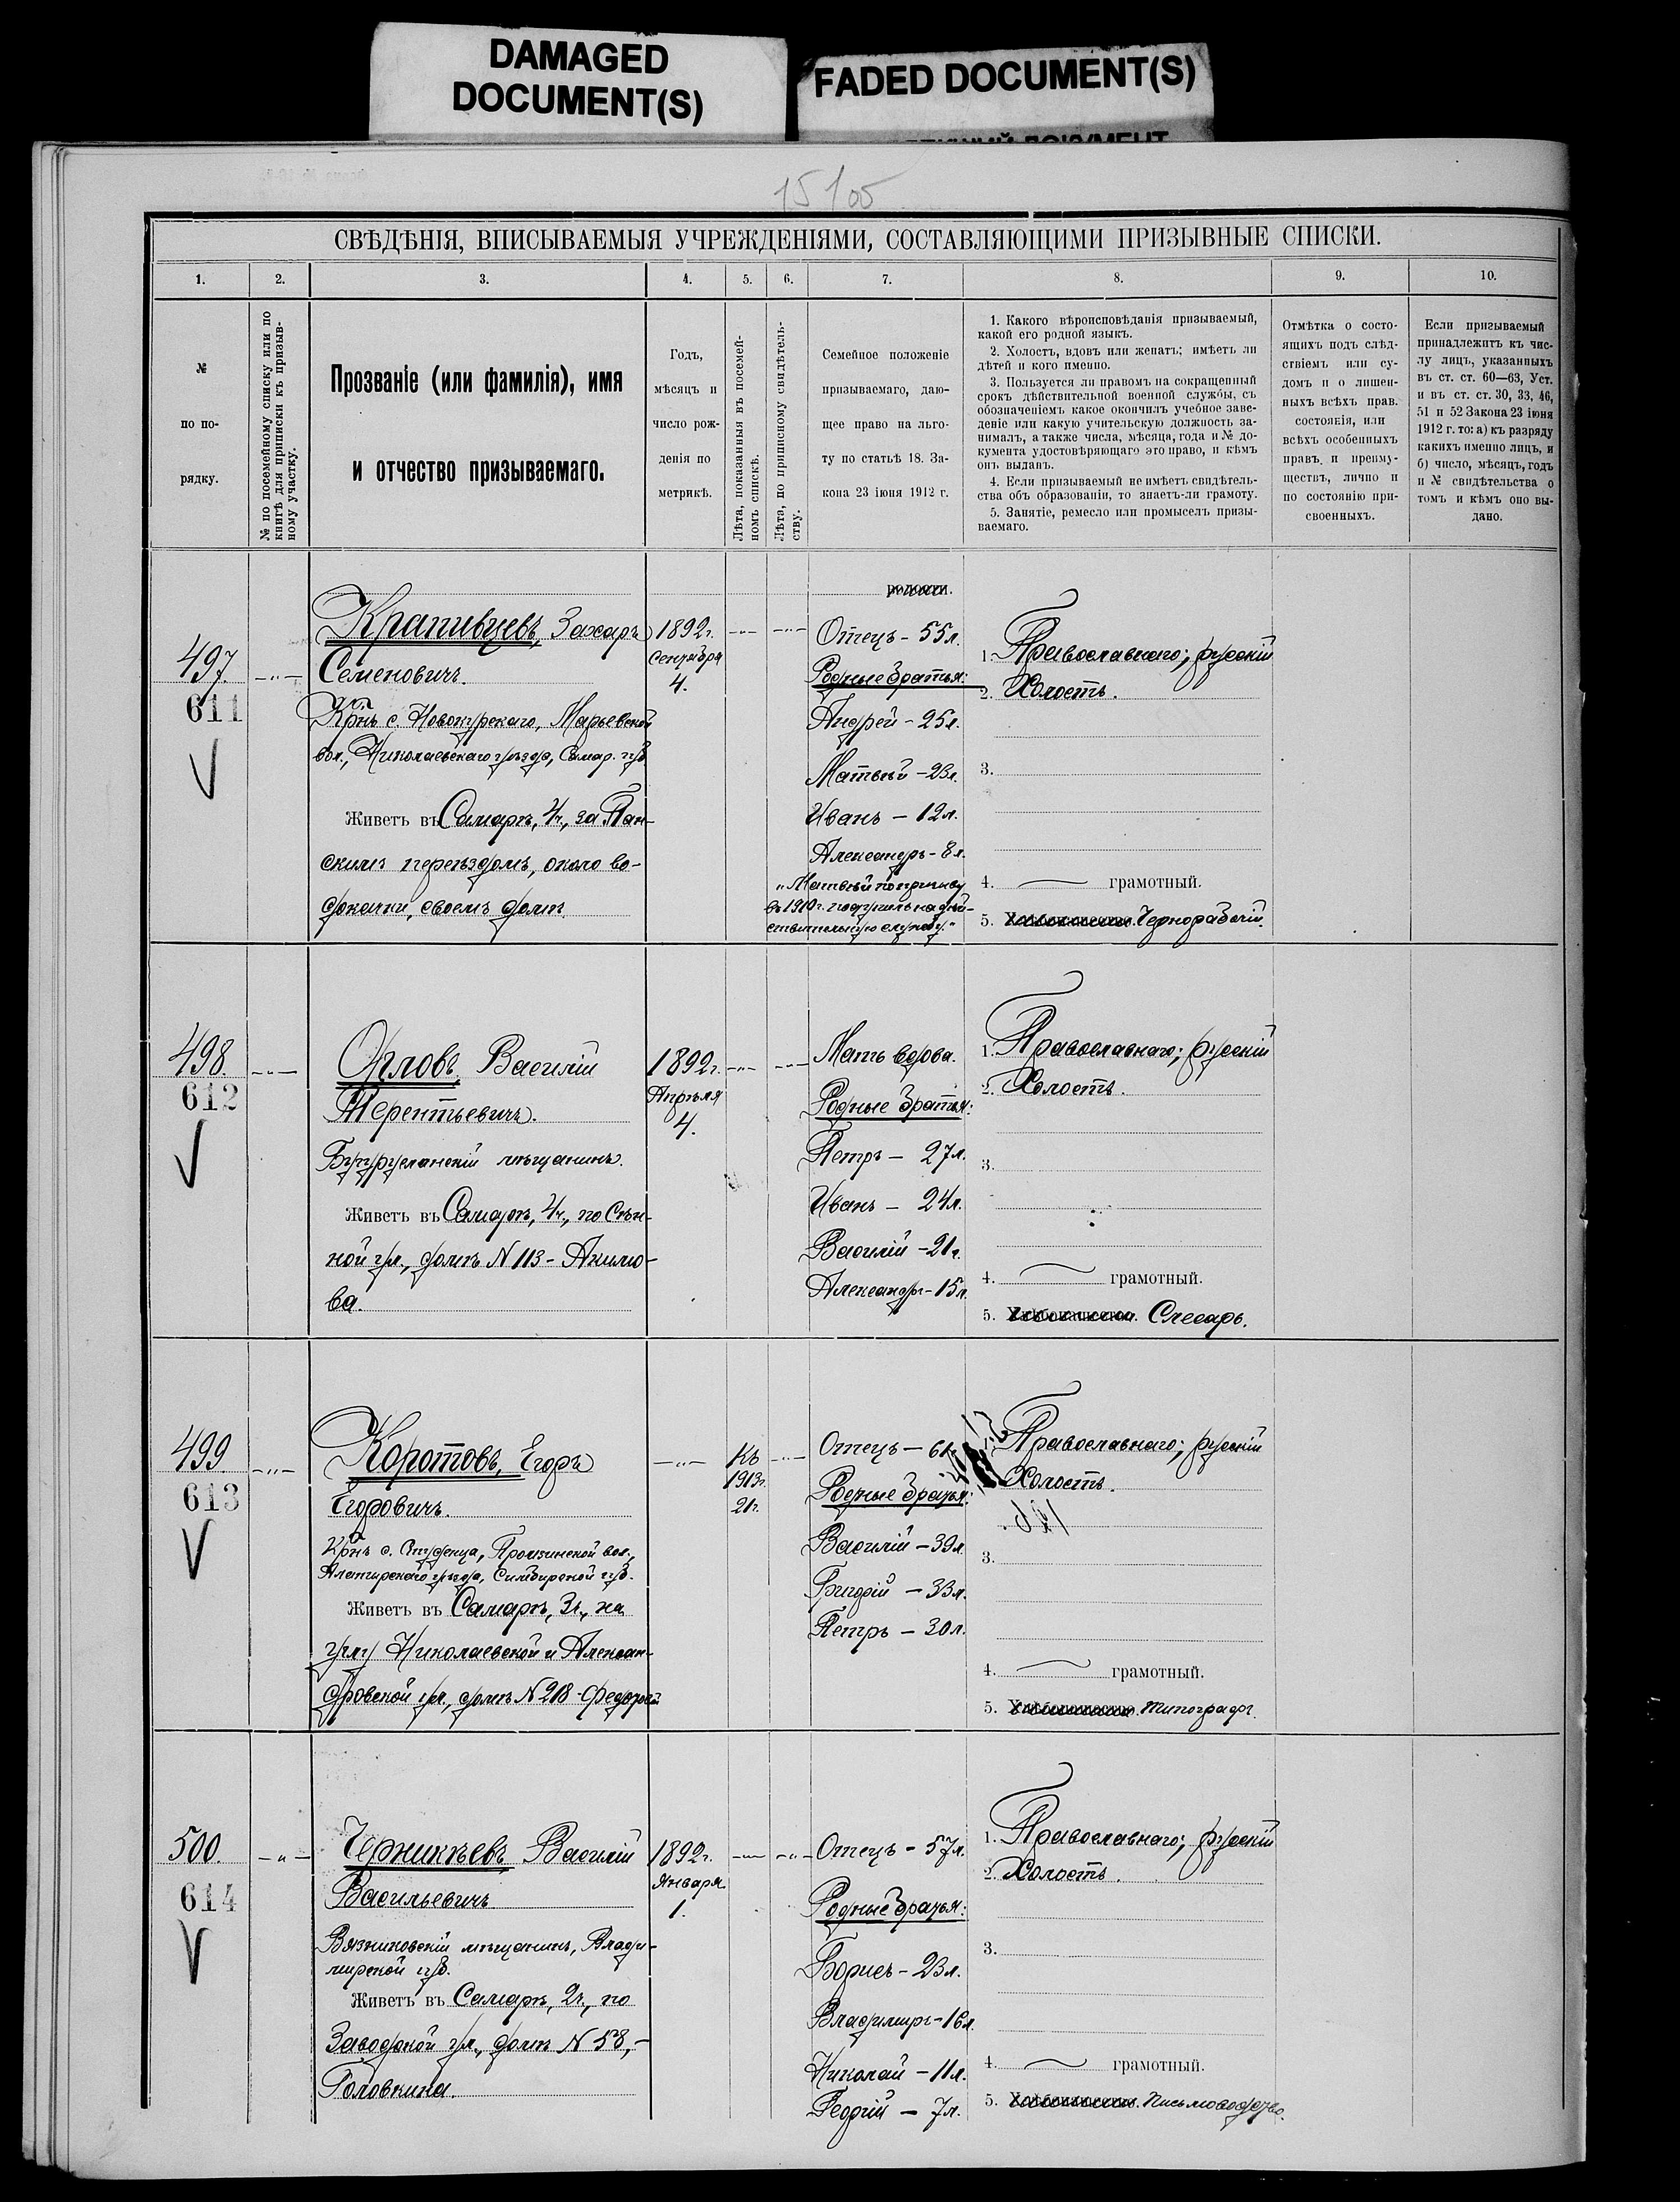 DAMAGED
DOCUMENT(S)
FADED DOCUMENT(S)
15105
СВѢДѢНІЯ, ВПИСЫВАЕМЫЯ УЧРЕЖДЕНІЯМИ, СОСТАВЛЯЮЩИМИ ПРИЗЫВНЫЕ СПИСКИ.
1. 2. 3. 4. 5. 6. 7. 8. 9. 10.
№
по по-
рядку.
№ по посемейному списку или по
книгѣ для приписки къ призыв-
ному участку.
Прозваніе (или фамилія), имя
и отчество призываемаго.
Годъ,
мѣсяцъ и
число рож-
денія по
метрикѣ.
Лѣта, показанныя въ посемей-
номъ спискѣ.
Лѣта, по приписному свидѣтель-
ству.
Семейное положеніе
призываемаго, даю-
щее право на льго-
ту по статьѣ 18. За-
кона 23 іюня 1912 г.
1. Какого вѣроисповѣданія призываемый,
какой его родной языкъ.
2. Холостъ, вдовъ или женатъ; имѣетъ ли
дѣтей и кого именно.
3. Пользуется ли правомъ на сокращенный
срокъ дѣйствительной военной службы, съ
обозначеніемъ какое окончилъ учебное заве-
деніе или какую учительскую должность за-
нималъ, а также числа, мѣсяца, года и № до-
кумента удостовѣряющаго это право, и кѣмъ
онъ выданъ.
4. Если призываемый не имѣетъ свидѣтель-
ства объ образованіи, то знаетъ-ли грамоту.
5. Занятіе, ремесло или промыселъ призы-
ваемаго.
Отмѣтка о состо-
ящихъ подъ слѣд-
ствіемъ или су-
домъ и о лишен-
ныхъ всѣхъ прав.
состоянія, или
всѣхъ особенныхъ
правъ и преиму-
ществъ, лично и
по состоянію при-
своенныхъ.
Если призываемый
принадлежитъ къ чис-
лу лицъ, указанныхъ
въ ст. ст. 60—63, Уст.
и въ ст. ст. 30, 33, 46,
51 и 52 Закона 23 іюня
1912 г. то: а) къ разряду
какихъ именно лицъ, и
б) число, мѣсяцъ, годъ
и № свидѣтельства о
томъ и кѣмъ оно вы-
дано.
497.
611
Крапивцевъ, Захаръ
Семеновичъ.
Крнъ с. Новокурскаго, Марьевской
вол., Николаевскаго уѣзда, Самар. губ.
Живетъ въ Самарѣ, 4ч., за Пан-
скимъ переѣздомъ, около во-
докачки, своемъ домѣ.
1892г.
Сентября
4.
Отецъ - 55л.
Родные братья:
Андрей - 25л.
Матвѣй - 23л.
Иванъ - 12л.
Александръ - 8л.
"Матвѣй по призыву
въ 1910г. поступилъ на дѣй-
ствительную службу."
1. Православнаго; русскій
2. Холостъ.
3.
4. грамотный.
5. Хлѣбопашество. Чернорабочій.
498.
612
Орловъ, Василій
Терентьевичъ.
Бугурусланскій мѣщанинъ.
Живетъ въ Самарѣ, 4ч., по Сѣн-
ной ул., домъ N 113 - Акимо-
ва.
1892г.
Апрѣля
4.
Мать вдова.
Родные братья:
Петръ - 27л.
Иванъ - 24л.
Василій - 21г.
Александръ - 15л.
1. Православнаго; русскій
2. Холостъ.
3.
4. грамотный.
5. Хлѣбопашество. Слесарь.
499.
613
Коротовъ, Егоръ
Егоровичъ.
Крнъ с. Студенца, Промзинской вол.,
Алатырскаго уѣзда, Симбирской губ.
Живетъ въ Самарѣ, 3ч., на
углу Николаевской и Алексан-
дровской ул., домъ N 218
Къ
1913г.
21г.
Отецъ - 61г.
Родные братья:
Василій - 39л.
Григорій - 33л.
Петръ - 30л.
1. Православнаго; русскій
2. Холостъ.
3.
4. грамотный.
5. Хлѣбопашество. Типографъ.
500.
614
Черникѣевъ, Василій
Васильевичъ
Вязниковскій мѣщанинъ, Влади-
мірской губ.
Живетъ въ Самарѣ, 2ч., по
Заводской ул., домъ N 58, -
Головкина.
1892г.
Января
1.
Отецъ - 57л.
Родные братья:
Борисъ - 23л.
Владиміръ - 16л.
Николай - 11л.
Георгій - 7л.
1. Православнаго; русскій
2. Холостъ.
3.
4. грамотный.
5. Хлѣбопашество. Письмоводство.